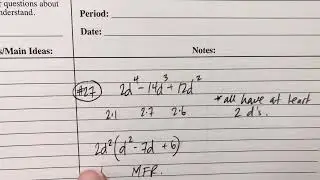 r questions about
understand.
Period:
Date:
s/Main Ideas:
Notes:
#27 2d⁴ - 14d³ + 12d²
2·1 2·7 2·6
*all have at least
2 d's.
2d²(d² - 7d + 6)
MFR.